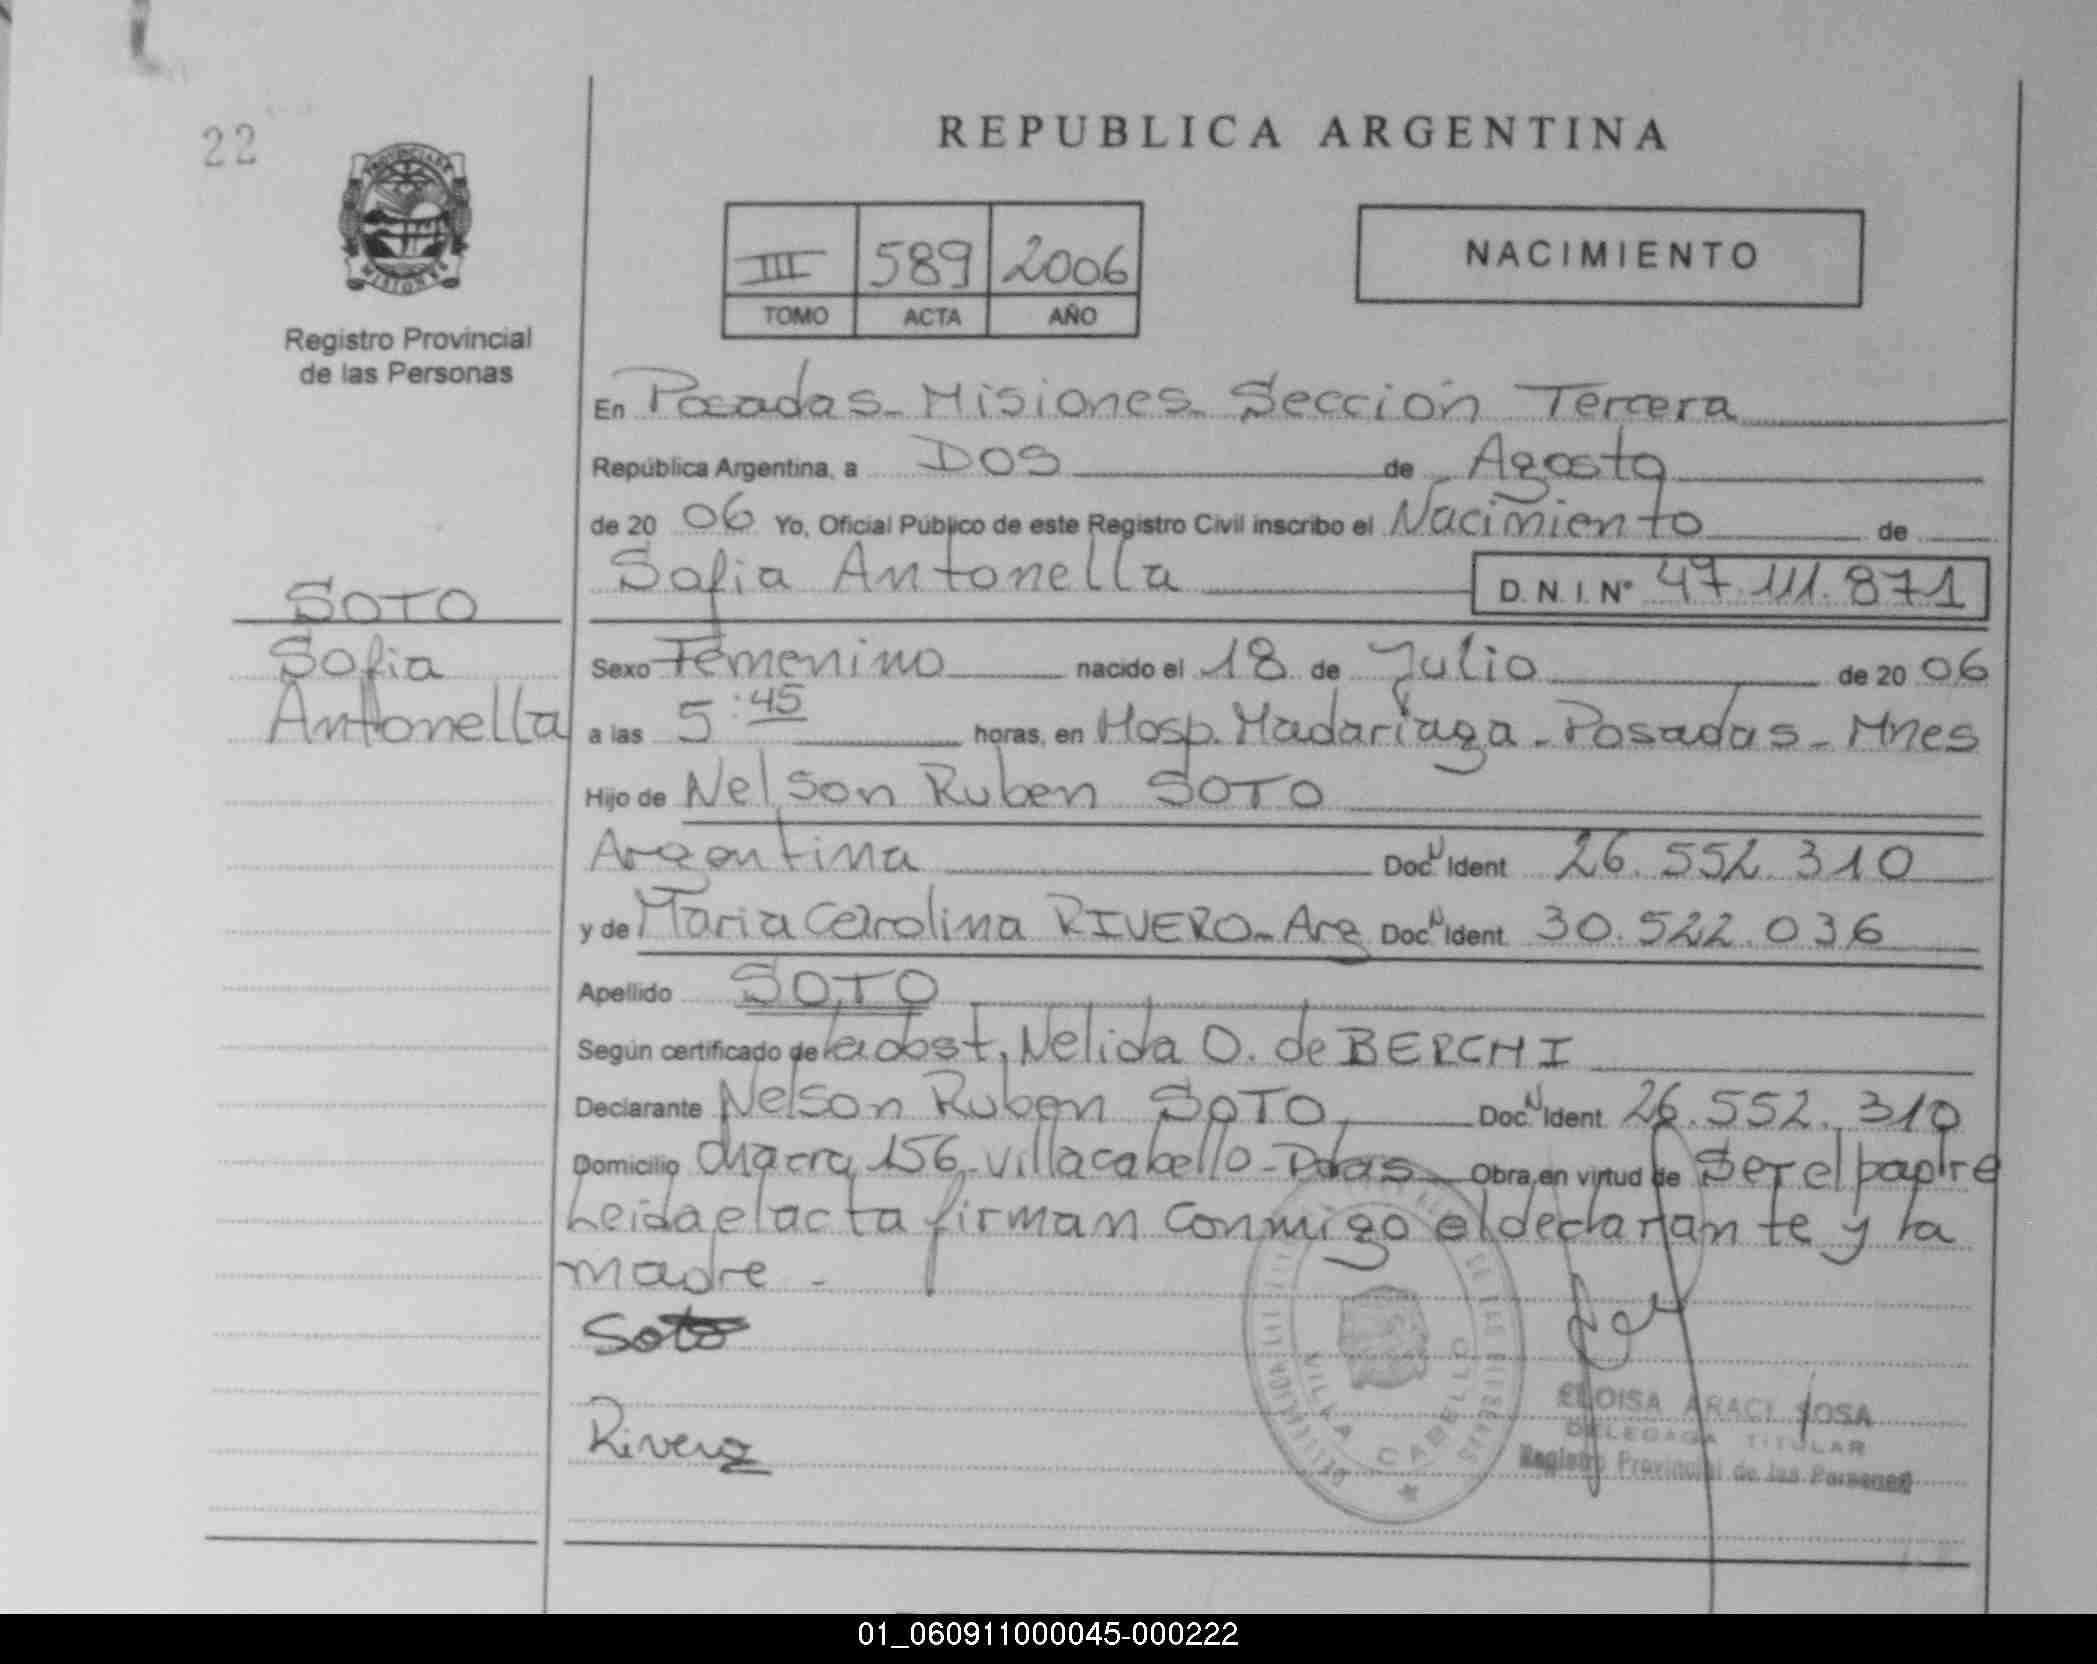 22
REPUBLICA ARGENTINA
III 589 2006
TOMO ACTA AÑO
NACIMIENTO
MISIONES
Registro Provincial
de las Personas
En Posadas - Misiones - Sección Tercera
República Argentina, a DOS de Agosto
de 20 06 Yo, Oficial Público de este Registro Civil inscribo el Nacimiento de
Sofia Antonella D.N.I. Nº 47.111.871
SOTO
Sofia
Antonella
Sexo Femenino nacido el 18 de Julio de 20 06
a las 5:45 horas, en Hosp. Madariaga - Posadas - Mnes
Hijo de Nelson Ruben SOTO
Argentina Doc. N Ident 26.552.310
y de Maria Carolina RIVERO - Arg Doc. N Ident. 30.522.036
Apellido SOTO
Según certificado de la obst. Nelida O. de BERCHI
Declarante Nelson Ruben SOTO Doc. N Ident. 26.552.310
Domicilio chacra 156 - villa cabello - Pdas Obra en virtud de Ser el padre
Leida el acta firman conmigo el declarante y la
madre -
Soto
Rivero
VILLA CABELLO
ELOISA ARACI SOSA
DELEGADA TITULAR
Registro Provincial de las Personas
01_060911000045-000222